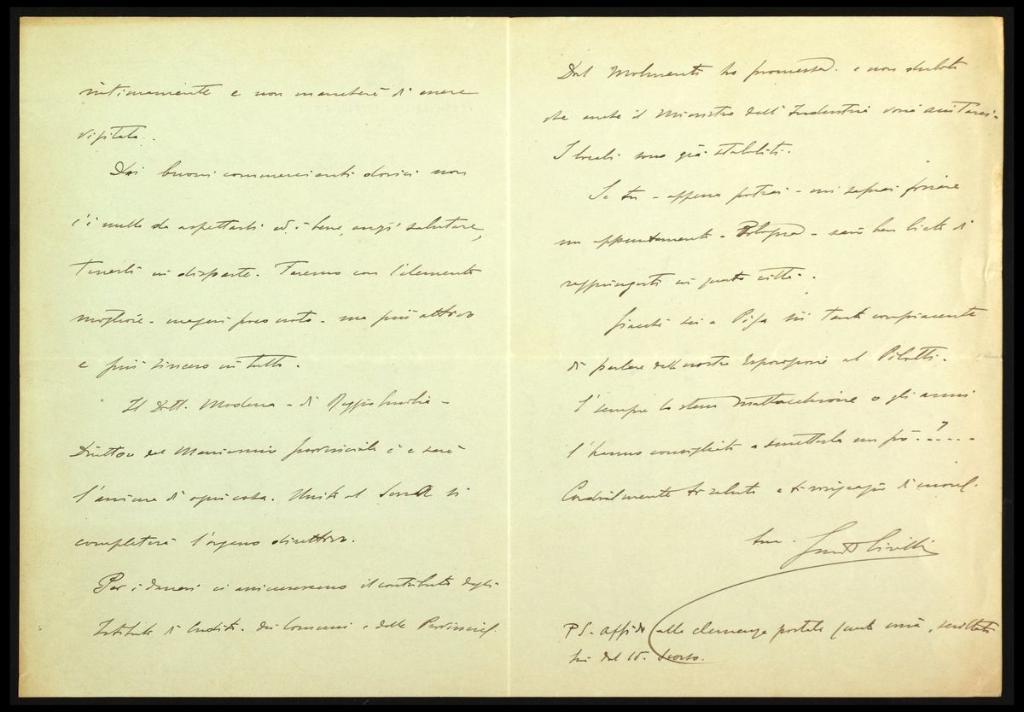 intimamente e non mancherà di essere
visitata.
Dai buoni commercianti dorici non
c'è nulla da aspettarsi ed è bene, anzi salutare,
tenerli in disparte. Taremo con l'elemento
migliore - magari poco noto - ma più attivo
e più sincero in tutto.
Il Dott. Modena - di Reggio Emilia -
Direttore del Manicomio provinciale è e sarà
l'anima di ogni cosa. Unito al si
completerà l'organo direttivo.
Per i danari ci assicureremo il contributo degli
Istituti di Credito, dei Comuni e della Provincia.
Dal Molmenti ho promessa e non dubito
che anche il Ministro dell'Industria vorrà aiutarci.
I locali sono già stabiliti.
Se tu - appena potrai - mi saprai fissare
un appuntamento a Bologna - sarò ben lieto di
raggiungerti in quella città.
Giacché sei a Pisa sii tanto compiacente
di parlare della nostra Esposizione al Pilotti.
È sempre lo stesso mattacchione o gli anni
l'hanno consigliato a smetterla un pò..?....
Cordialmente ti saluto e ti ringrazio di cuore.
tuo
P.S. Affido alla clemenza postale questa mia,
tua del 15. scorso.